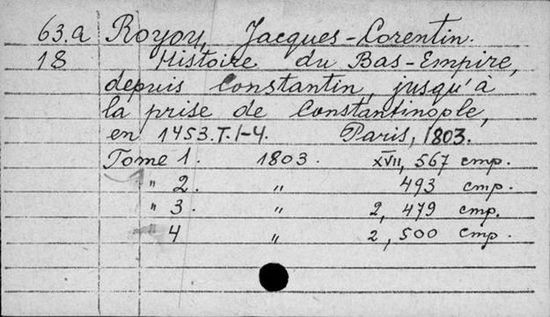 63.a Royou, Jacques-Corentin.
18 Histoire du Bas-Empire,
depuis Constantin, jusqu'à
la prise de Constantinople,
en 1453. T. 1-4. Paris, 1803.
Tome 1. 1803. XVII, 567 стр.
" 2. " 493 стр.
" 3. " 2, 479 стр.
" 4 " 2, 500 стр.